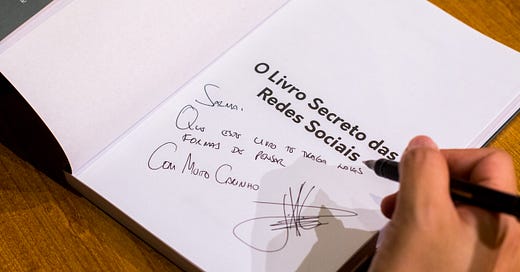 O Livro Secreto das
Redes Sociais
Sarna,
Que este livro te traga novas
formas de pensar
Com Muito Carinho